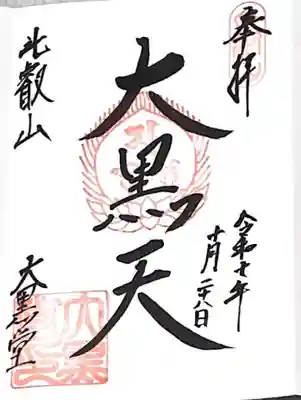 奉拝
令和七年
十月二十八日
大黒天
比叡山
大黒堂